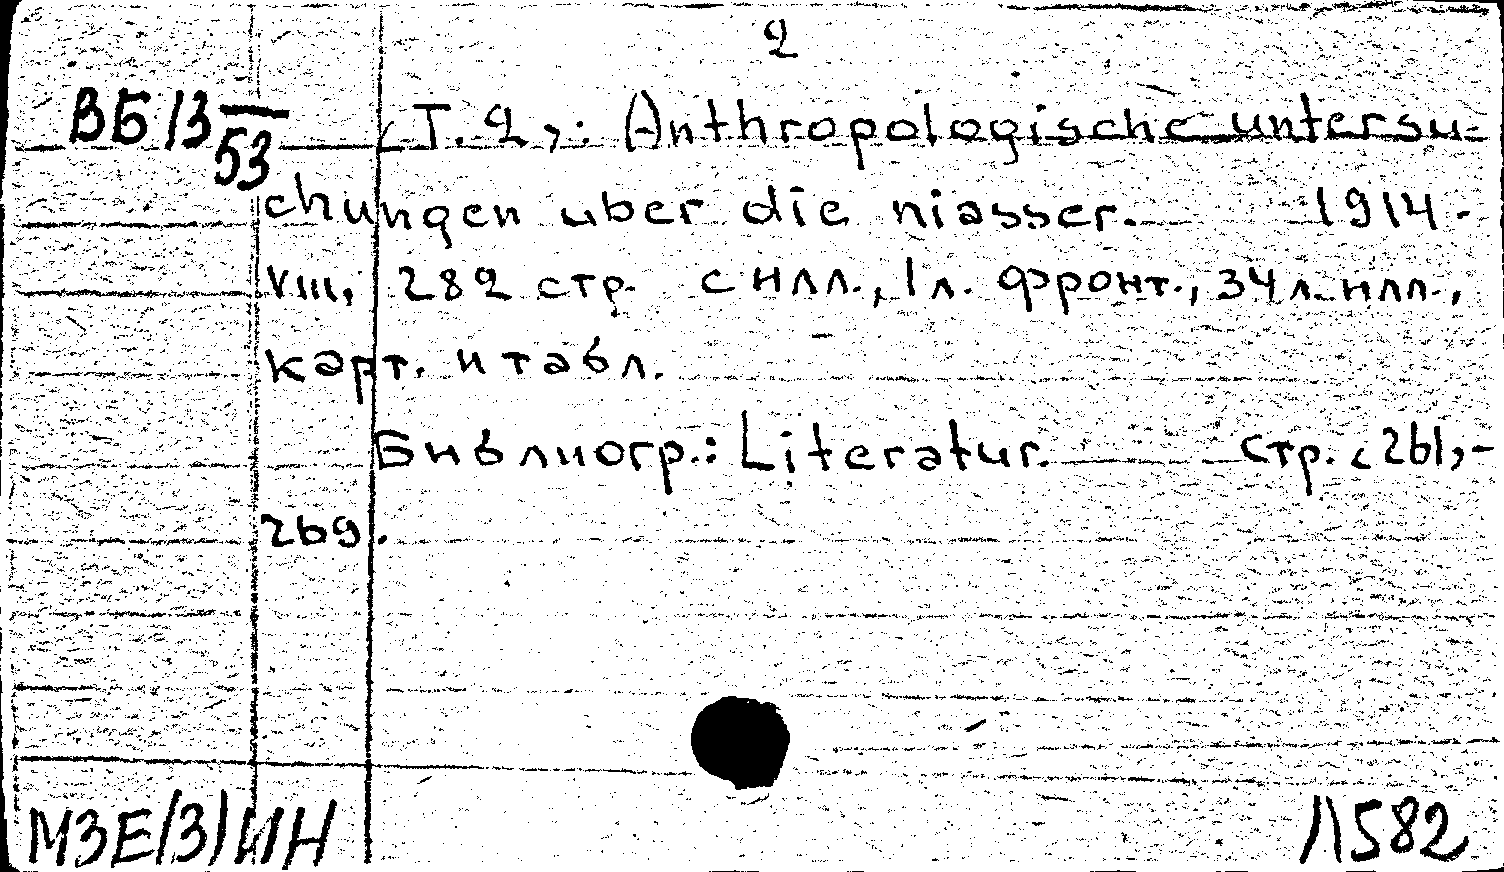 2
ВБ 13
53
<Т. 2>: Anthropologische untersu-
chungen uber die niasser. 1914.
VIII, 282 стр. с илл., 1 л. фронт., 34 л. илл.,
карт. и табл.
Библиогр.: Literatur. стр. <261>-
269.
МЗЕ(3)ИН
Л582